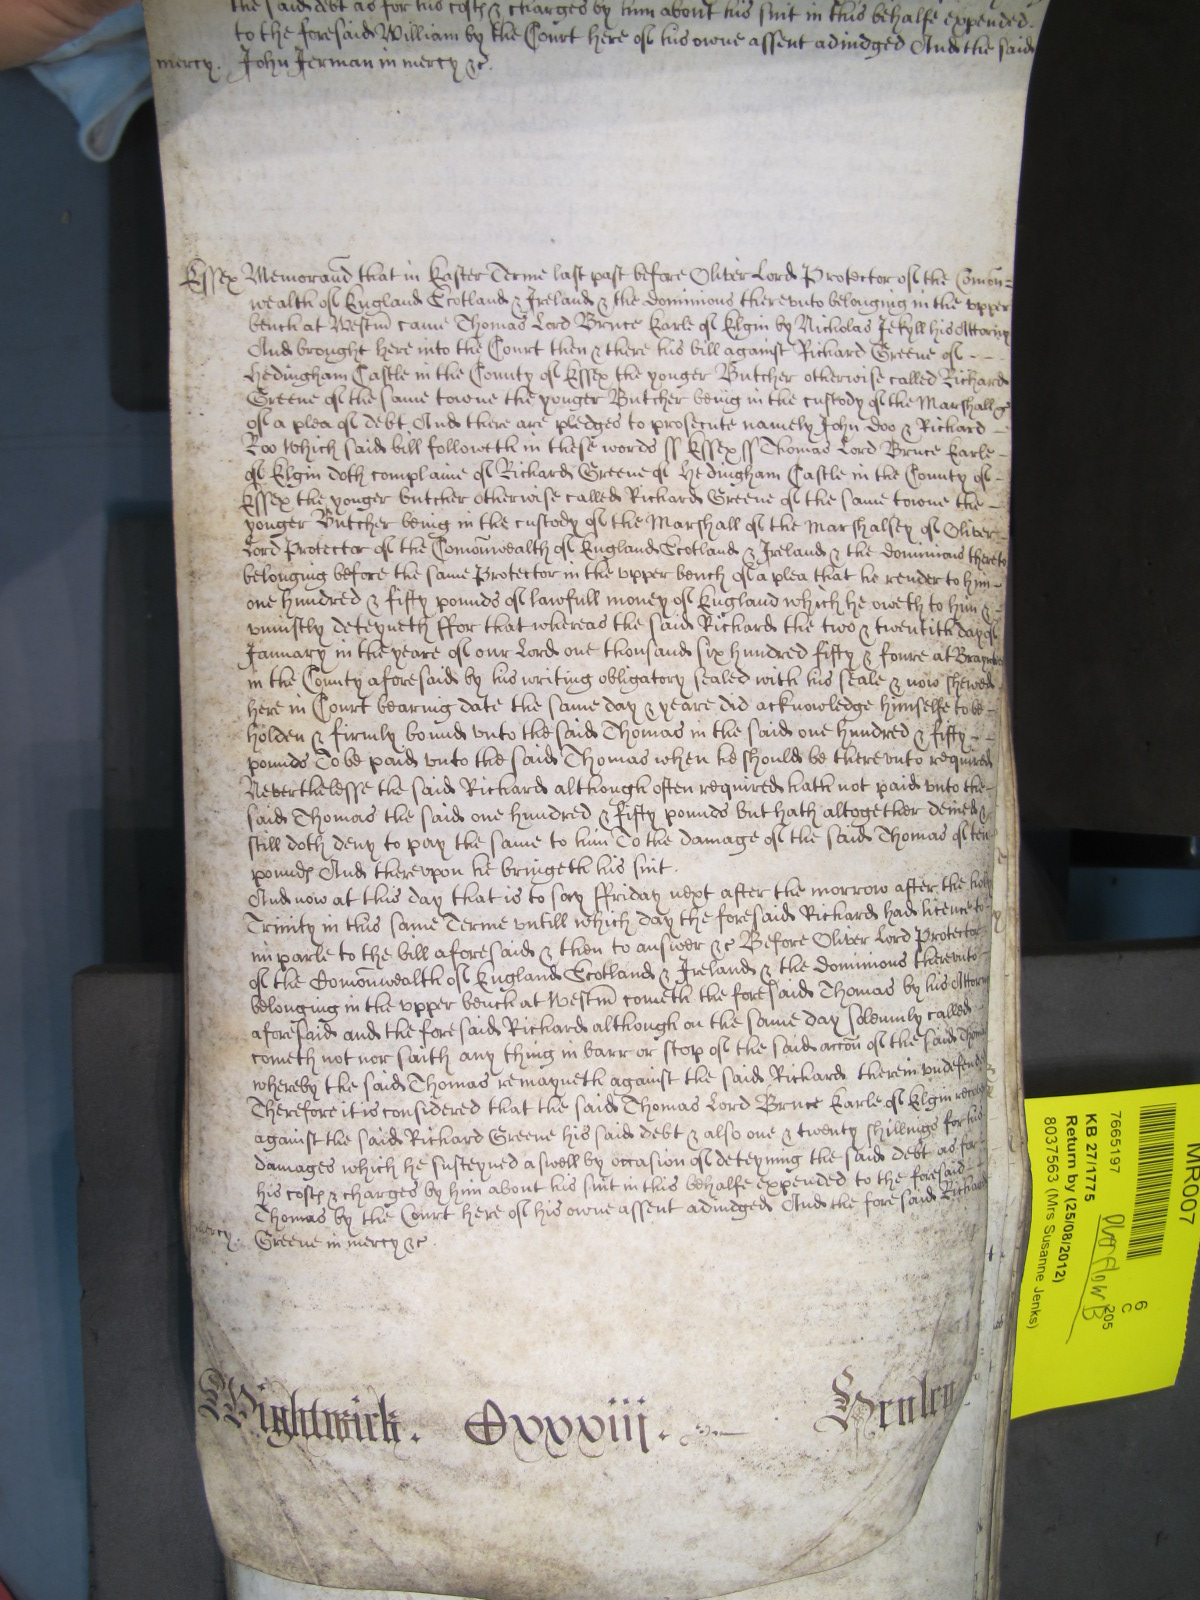 the said debt as for his costs & charges by him about his suit in this behalfe expended.
to the foresaid William by the Court here of his owne assent adiudged And the said
mercy. John Jerman in mercy &c.
Essex Memorand that in Easter Terme last past before Oliver Lord Protector of the Comon-
wealth of England Scotland & Ireland & the dominions therevnto belonging in the vpper
bench at Westm came Thomas Lord Bruce Earle of Elgin by Nicholas Jekyll his Attorney
And brought here into the Court then & there his bill against Richard Greene of - - -
Hedingham Castle in the County of Essex the yonger Butcher otherwise called Richard
Greene of the same towne the yonger Butcher being in the custody of the Marshall &c
of a plea of debt And there are pledges to prosecute namely John Doo & Richard -
Roo Which said bill followeth in these words ss Essex ss Thomas Lord Bruce Earle -
of Elgin doth complaine of Richard Greene of Hedingham Castle in the County of -
Essex the yonger butcher otherwise called Richard Greene of the same towne the -
yonger Butcher being in the custody of the Marshall of the Marshalsey of Oliver -
Lord Protector of the Comonwealth of England Scotland & Ireland & the dominions thereto
belonging before the same Protector in the vpper bench of a plea that he render to him -
one hundred & fifty pounds of lawfull money of England which he oweth to him & -
vniustly deteyneth ffor that whereas the said Richard the two & twentith day of
January in the yeare of our Lord one thousand six hundred fifty & foure at
in the County aforesaid by his writing obligatory sealed with his seale & now shewed
here in Court bearing date the same day & yeare did acknowledge himselfe to be -
holden & firmly bound vnto the said Thomas in the said one hundred & fifty - -
pounds To be paid vnto the said Thomas when he should be therevnto required
Neverthelesse the said Richard although often required hath not paid vnto the -
said Thomas the said one hundred & fifty pounds but hath altogether denied &
still doth deny to pay the same to him To the damage of the said Thomas of ten
pounds And therevpon he bringeth his suit.
And now at this day that is to say ffriday next after the morrow after the holy
Trinity in this same Terme vntill which day the foresaid Richard had licence to -
imparle to the bill aforesaid & then to answer &c Before Oliver Lord Protector
of the Comonwealth of England Scotland & Ireland & the dominions therevnto -
belonging in the vpper bench at Westm cometh the foresaid Thomas by his Attorn
aforesaid and the foresaid Richard although on the same day solemnly called -
cometh not nor saith any thing in barr or stop of the said accon of the said Thomas
whereby the said Thomas remayneth against the said Richard therein vndefended
Therefore it is considered that the said Thomas Lord Bruce Earle of Elgin recover
against the said Richard Greene his said debt & also one & twenty shillings for his
damages which he susteyned aswell by occasion of deteyning the said debt as for -
his costs & charges by him about his suit in this behalfe expended to the foresaid -
Thomas by the Court here of his owne assent adiudged And the foresaid Richard
mercy. Greene in mercy &c.
Wightwick. Oxxxiii. Henley
MR007
7665197
KB 27/1775
Return by (25/08/2012)
8037563 (Mrs Susanne Jenks)
6
C
205